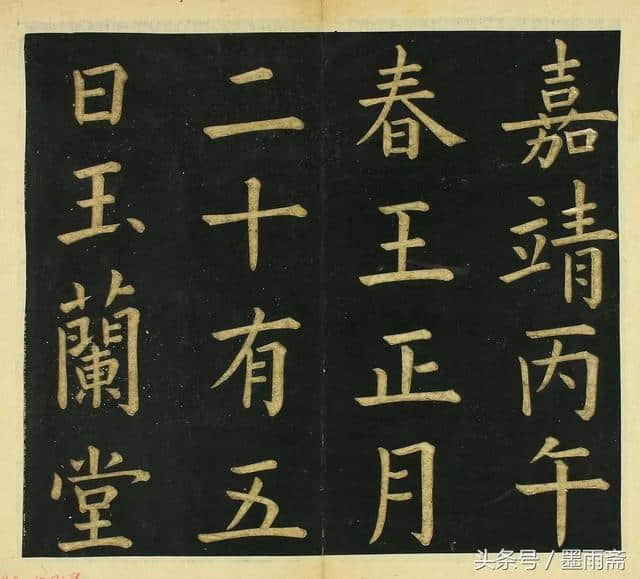 嘉靖丙午
春王正月
二十有五
日玉蘭堂
头条号 / 墨雨斋